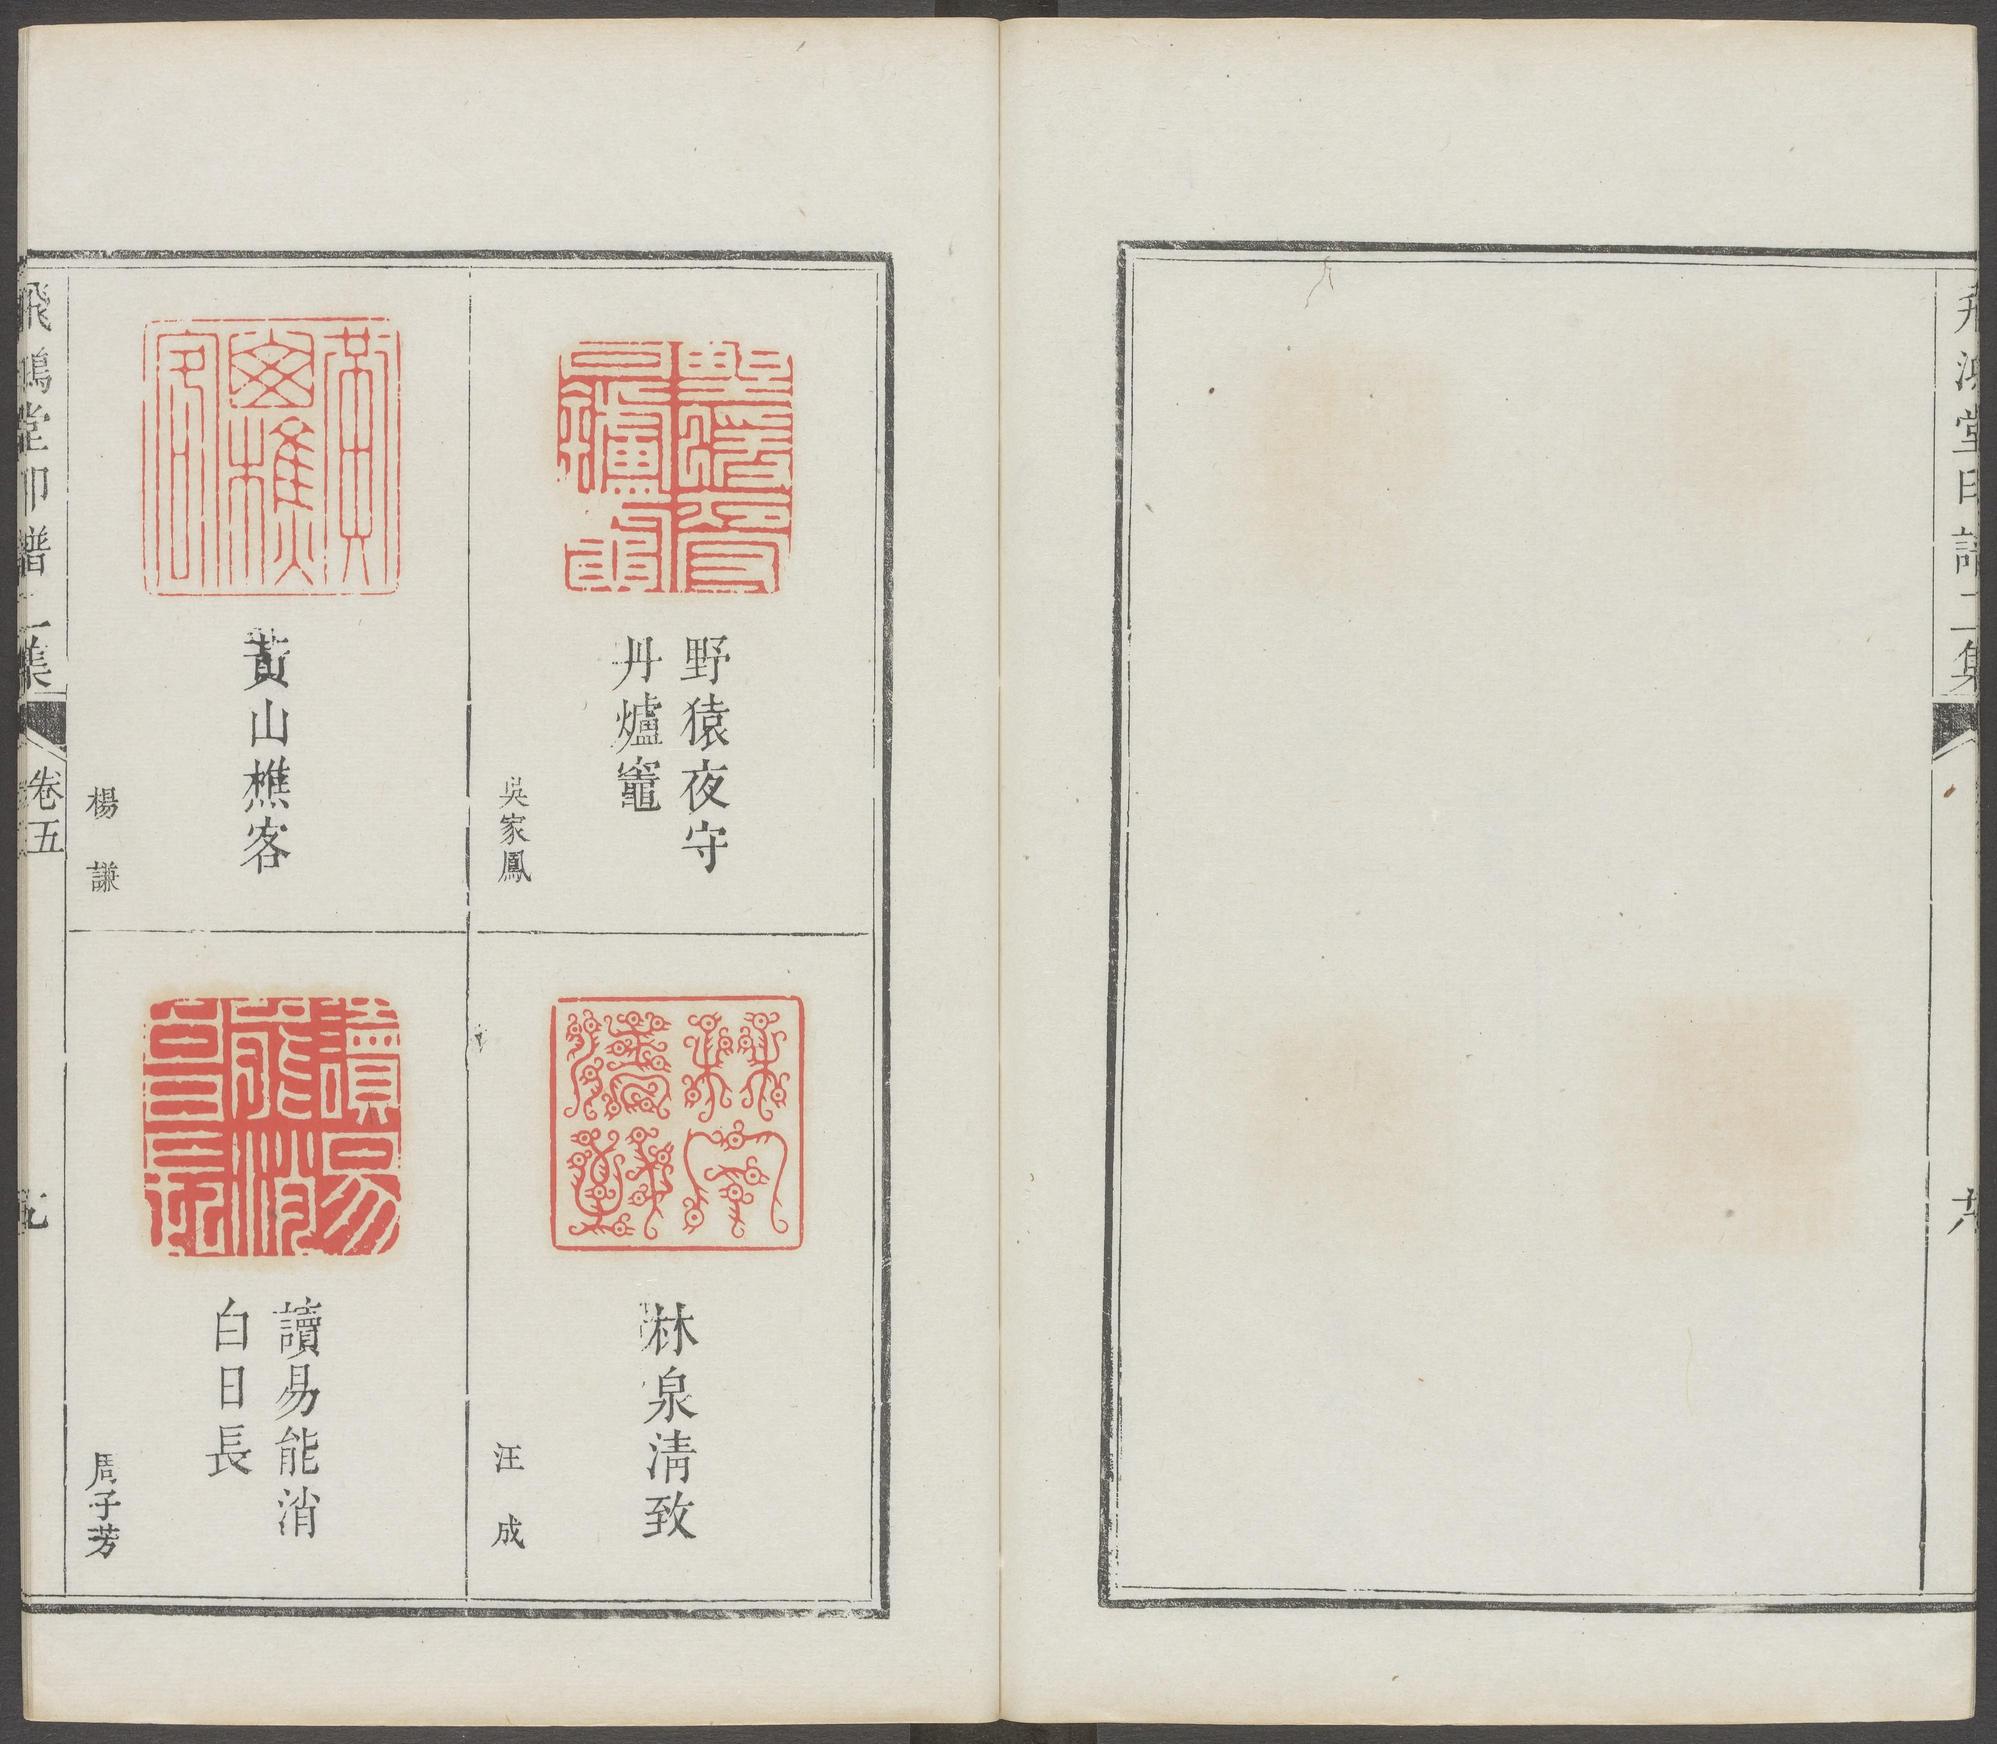 飛鴻堂印譜二集
野猿夜守
丹爐竈
吳家鳳
林泉清致
汪成
黃山樵客
楊謙
讀易能消
白日長
周子芳
飛鴻堂印譜二集
卷五